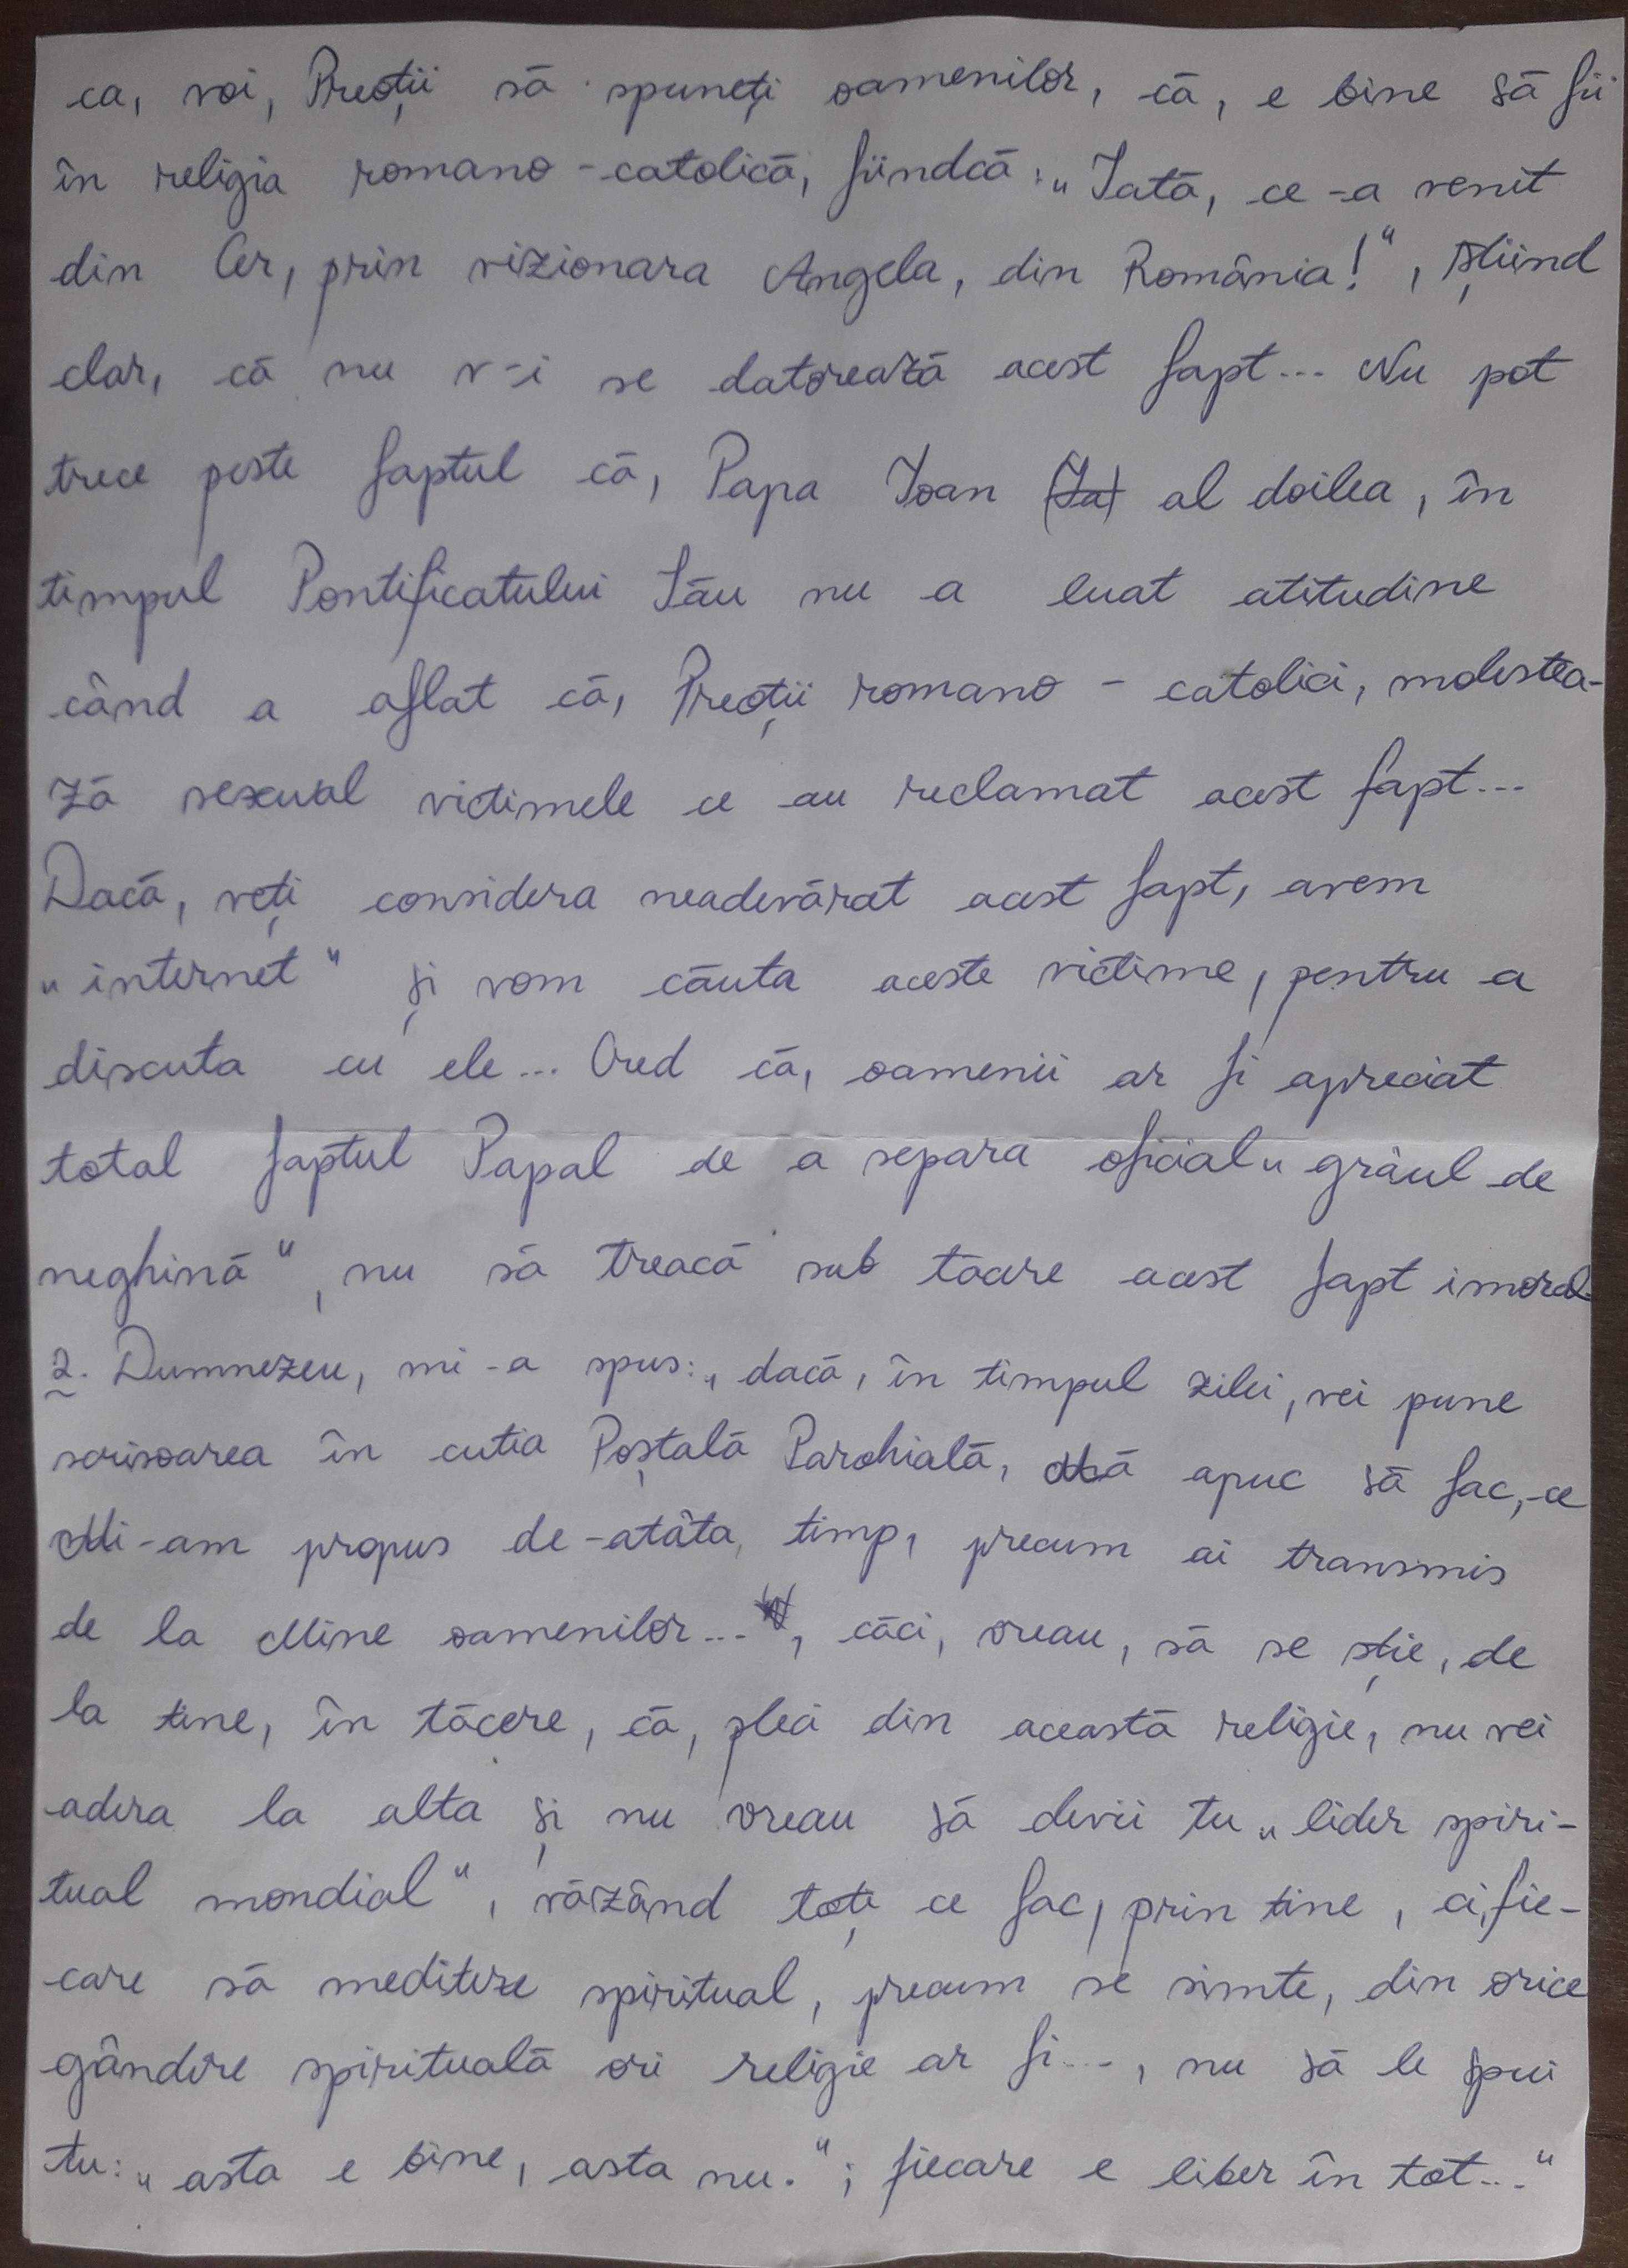 ca, voi, Preoții să spuneți oamenilor, că, e bine să fii
în religia romano-catolică, fiindcă: „Iată, ce-a venit
din Cer, prin vizionara Angela, din România!", știind
clar, că nu v-i se datorează acest fapt... Nu pot
trece peste faptul că, Papa Ioan (Ia) al doilea, în
timpul Pontificatului Său nu a luat atitudine
când a aflat că, Preoții romano-catolici, molestea-
ză sexual victimele ce au reclamat acest fapt...
Dacă, veți considera neadevărat acest fapt, avem
„internet" și vom căuta aceste victime, pentru a
discuta cu ele... Cred că, oamenii ar fi apreciat
total faptul Papal de a separa oficial „grâul de
neghină", nu să treacă sub tăcere acest fapt imoral.
2. Dumnezeu, mi-a spus: „dacă, în timpul zilei, vei pune
scrisoarea în cutia Poștală Parohială, Mă apuc să fac, ce
Mi-am propus de-atâta timp, precum ai transmis
de la Mine oamenilor..., căci, vreau, să se știe, de
la tine, în tăcere, că, pleci din această religie, nu vei
adera la alta și nu vreau să devii tu „lider spiri-
tual mondial", văzând toți ce fac, prin tine, ci, fie-
care să mediteze spiritual, precum se simte, din orice
gândire spirituală ori religie ar fi..., nu să le spui
tu: „asta e bine, asta nu."; fiecare e liber în tot..."